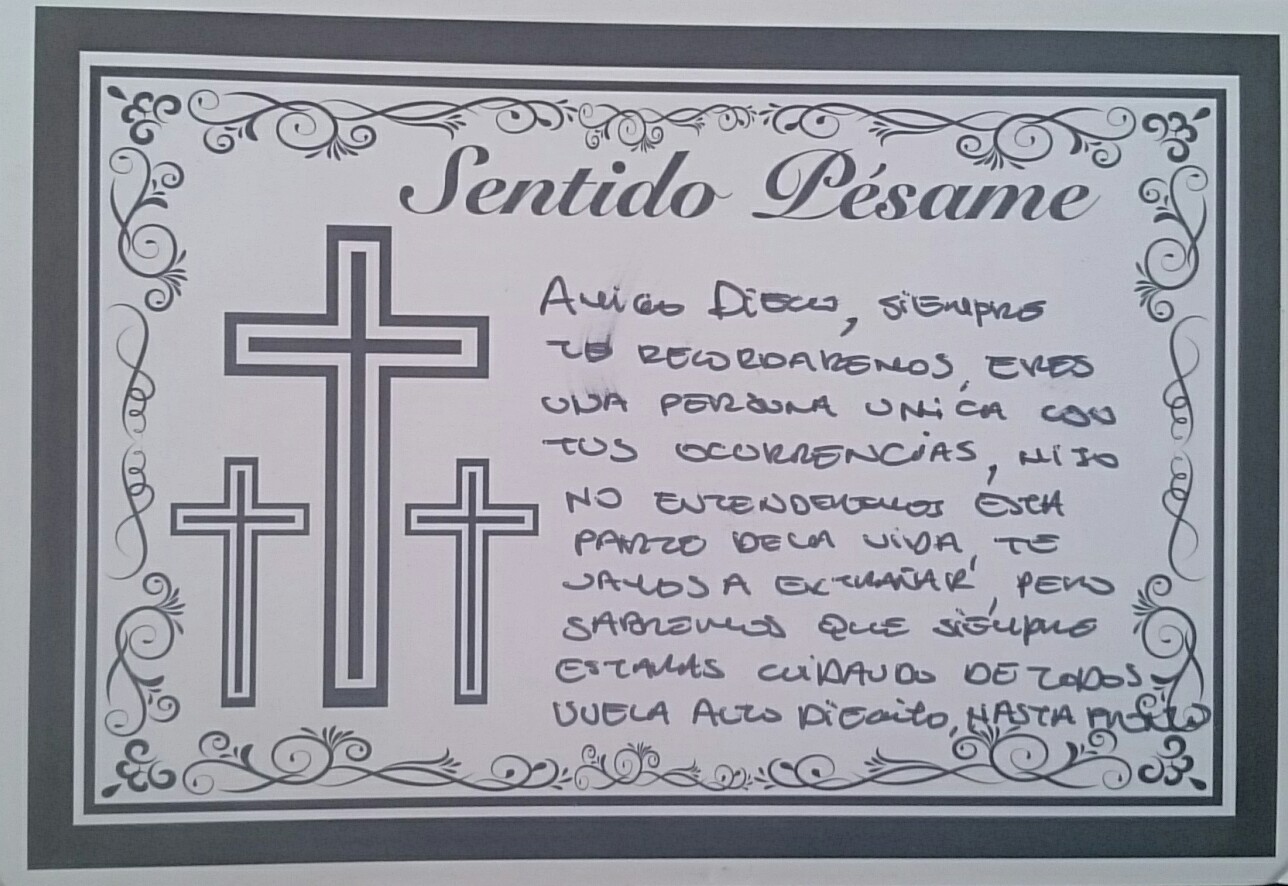 Sentido Pésame
AMIGO DIEGO, SIEMPRE
TE RECORDAREMOS, ERES
UNA PERSONA UNICA CON
TUS OCURRENCIAS, HIJO
NO ENTENDEREMOS ÉSTA
PARTE DE LA VIDA, TE
VAMOS A EXTRAÑAR, PERO
SABREMOS QUE SIEMPRE
ESTARAS CUIDANDO DE TODOS
VUELA ALTO DIEGITO, HASTA PRONTO